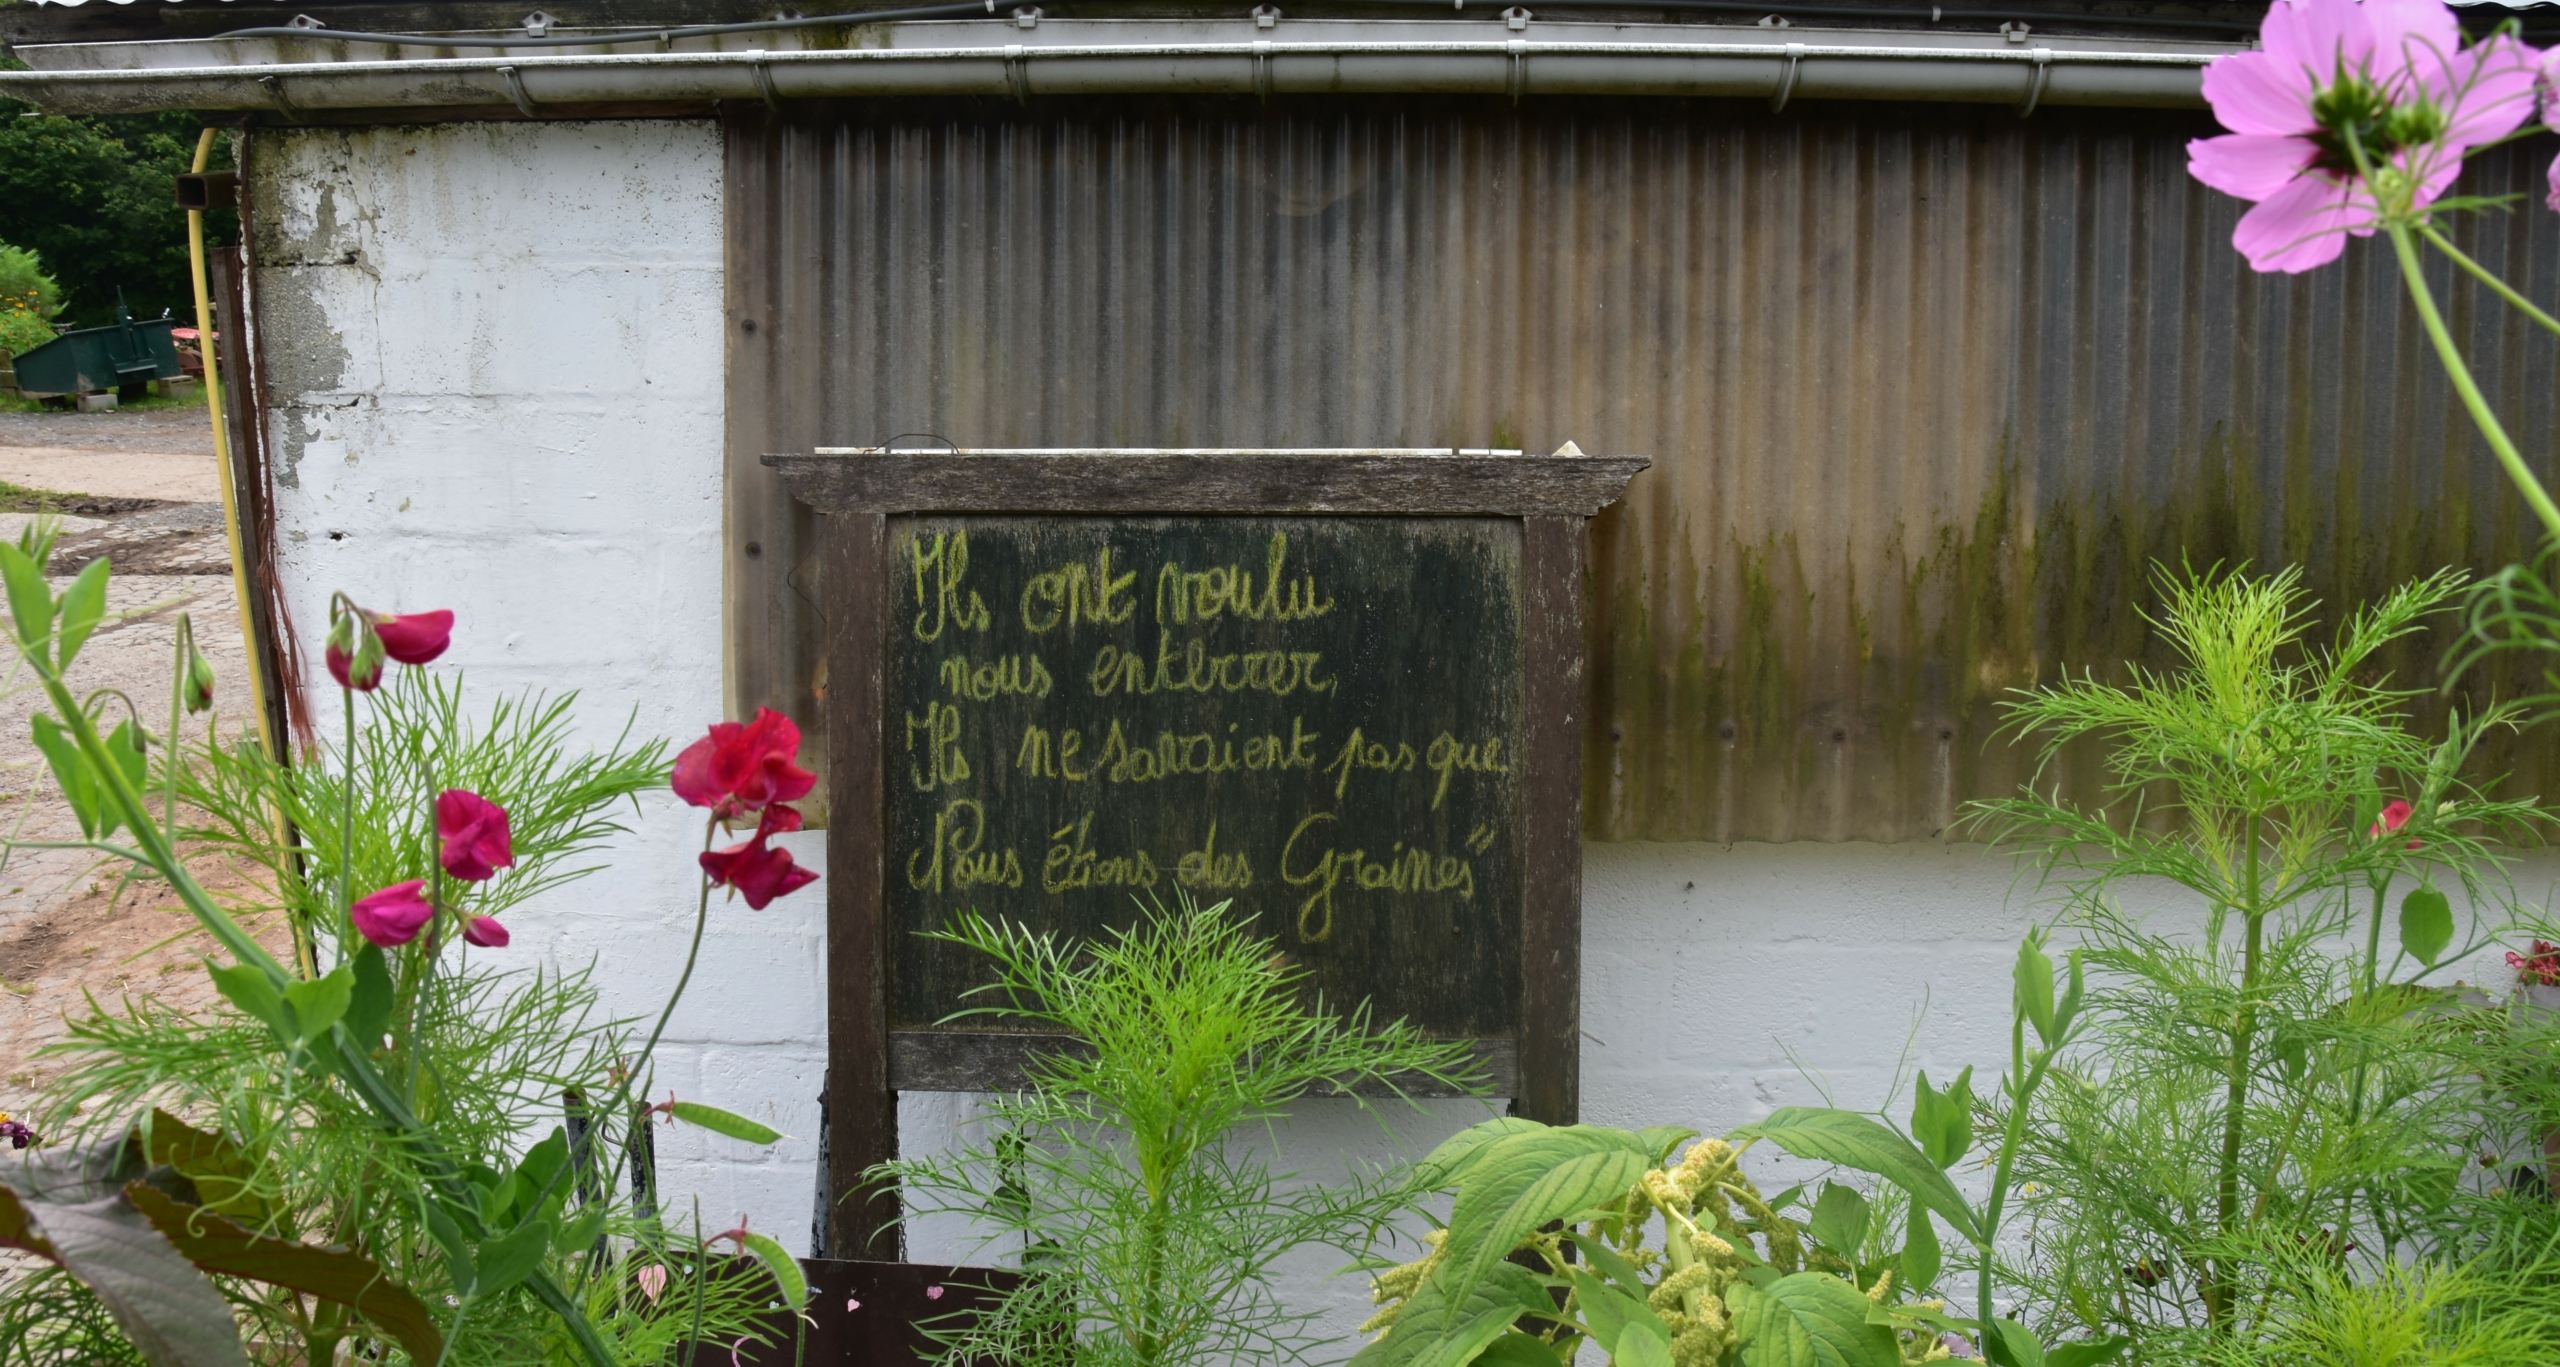 "Ils ont voulu
nous enterrer,
Ils ne savaient pas que
Nous étions des Graines"